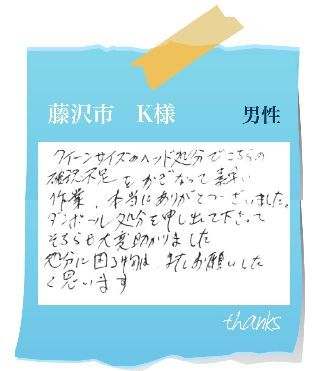 藤沢市 K様 男性
クイーンサイズのベッド処分でこちらの
確認不足をかぎなって素早い
作業、本当にありがとうございました。
ダンボール処分を申し出て下さって
そちらも大変助かりました
処分に困る物は、またお願いした
く思います
thanks